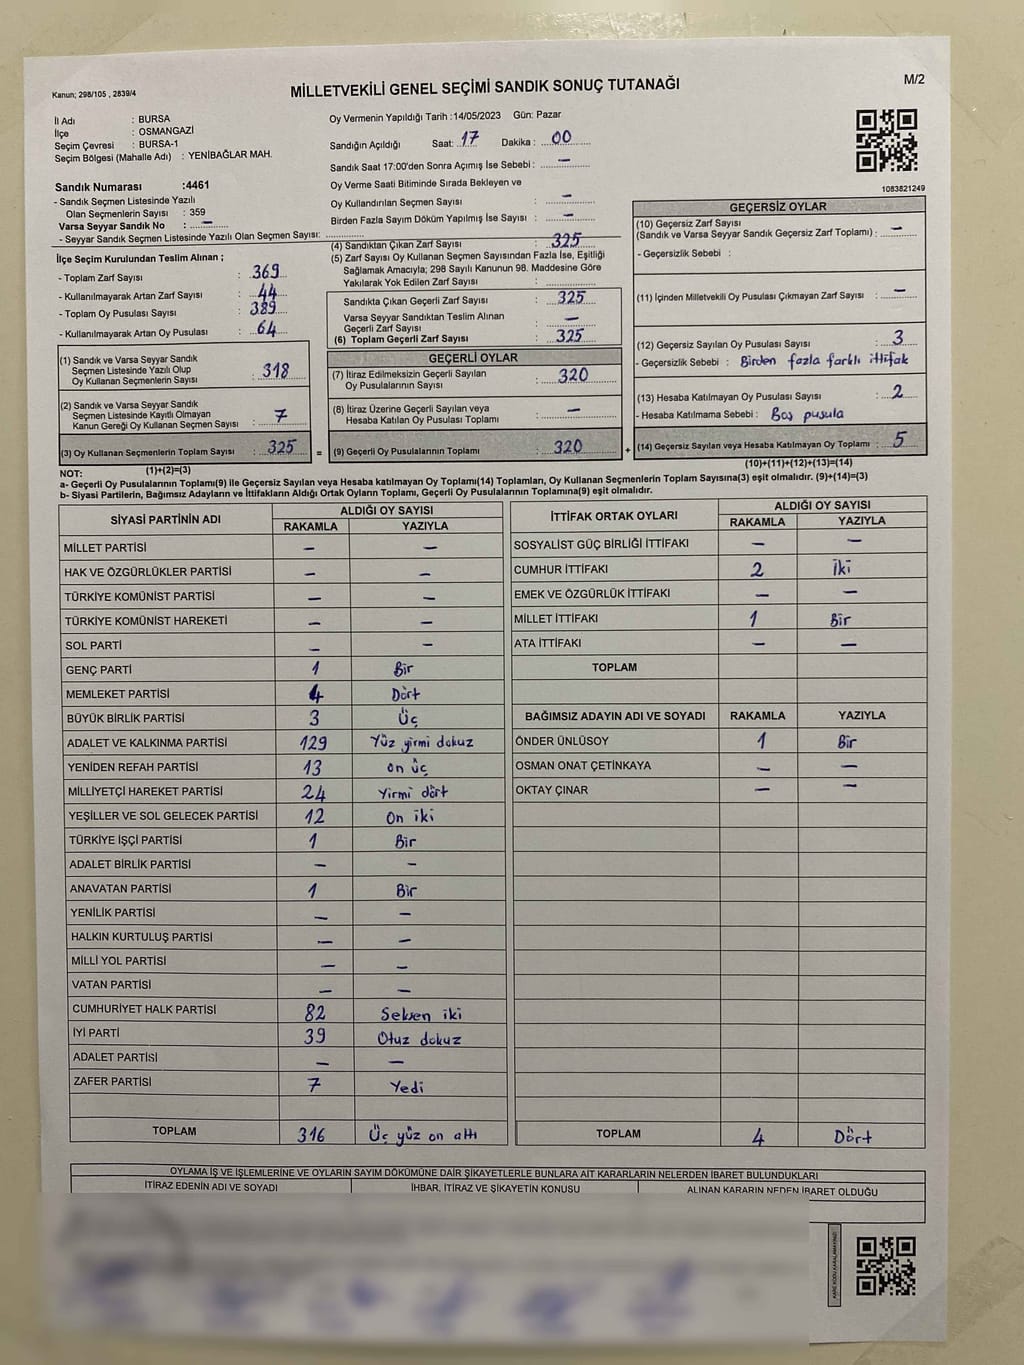 Kanun; 298/105 , 2839/4
MİLLETVEKİLİ GENEL SEÇİMİ SANDIK SONUÇ TUTANAĞI
M/2
İl Adı : BURSA
İlçe : OSMANGAZİ
Seçim Çevresi : BURSA-1
Seçim Bölgesi (Mahalle Adı) : YENİBAĞLAR MAH.
Sandık Numarası :4461
- Sandık Seçmen Listesinde Yazılı
Olan Seçmenlerin Sayısı : 359
Varsa Seyyar Sandık No : –
- Seyyar Sandık Seçmen Listesinde Yazılı Olan Seçmen Sayısı:
Oy Vermenin Yapıldığı Tarih :14/05/2023 Gün: Pazar
Sandığın Açıldığı Saat: 17 Dakika : 00
Sandık Saat 17:00'den Sonra Açımış İse Sebebi : –
Oy Verme Saati Bitiminde Sırada Bekleyen ve
Oy Kullandırılan Seçmen Sayısı : –
Birden Fazla Sayım Döküm Yapılmış İse Sayısı : –
1083821249
İlçe Seçim Kurulundan Teslim Alınan ;
- Toplam Zarf Sayısı : 369
- Kullanılmayarak Artan Zarf Sayısı : 44
- Toplam Oy Pusulası Sayısı : 389
- Kullanılmayarak Artan Oy Pusulası : 64
(1) Sandık ve Varsa Seyyar Sandık
Seçmen Listesinde Yazılı Olup
Oy Kullanan Seçmenlerin Sayısı : 318
(2) Sandık ve Varsa Seyyar Sandık
Seçmen Listesinde Kayıtlı Olmayan
Kanun Gereği Oy Kullanan Seçmen Sayısı : 7
(3) Oy Kullanan Seçmenlerin Toplam Sayısı : 325 =
(4) Sandıktan Çıkan Zarf Sayısı : 325
(5) Zarf Sayısı Oy Kullanan Seçmen Sayısından Fazla İse, Eşitliği
Sağlamak Amacıyla; 298 Sayılı Kanunun 98. Maddesine Göre
Yakılarak Yok Edilen Zarf Sayısı :
Sandıkta Çıkan Geçerli Zarf Sayısı : 325
Varsa Seyyar Sandıktan Teslim Alınan
Geçerli Zarf Sayısı : –
(6) Toplam Geçerli Zarf Sayısı : 325
GEÇERLİ OYLAR
(7) İtiraz Edilmeksizin Geçerli Sayılan
Oy Pusulalarının Sayısı : 320
(8) İtiraz Üzerine Geçerli Sayılan veya
Hesaba Katılan Oy Pusulası Toplamı : –
(9) Geçerli Oy Pusulalarının Toplamı : 320 +
GEÇERSİZ OYLAR
(10) Geçersiz Zarf Sayısı
(Sandık ve Varsa Seyyar Sandık Geçersiz Zarf Toplamı) : –
- Geçersizlik Sebebi :
(11) İçinden Milletvekili Oy Pusulası Çıkmayan Zarf Sayısı : –
(12) Geçersiz Sayılan Oy Pusulası Sayısı : 3
- Geçersizlik Sebebi : Birden fazla farklı ittifak
(13) Hesaba Katılmayan Oy Pusulası Sayısı : 2
- Hesaba Katılmama Sebebi : Boş pusula
(14) Geçersiz Sayılan veya Hesaba Katılmayan Oy Toplamı : 5
NOT: (1)+(2)=(3)
(10)+(11)+(12)+(13)=(14)
a- Geçerli Oy Pusulalarının Toplamı(9) ile Geçersiz Sayılan veya Hesaba katılmayan Oy Toplamı(14) Toplamları, Oy Kullanan Seçmenlerin Toplam Sayısına(3) eşit olmalıdır. (9)+(14)=(3)
b- Siyasi Partilerin, Bağımsız Adayların ve İttifakların Aldığı Ortak Oyların Toplamı, Geçerli Oy Pusulalarının Toplamına(9) eşit olmalıdır.
SİYASİ PARTİNİN ADI ALDIĞI OY SAYISI
RAKAMLA YAZIYLA
MİLLET PARTİSİ – –
HAK VE ÖZGÜRLÜKLER PARTİSİ – –
TÜRKİYE KOMÜNİST PARTİSİ – –
TÜRKİYE KOMÜNİST HAREKETİ – –
SOL PARTİ – –
GENÇ PARTİ 1 Bir
MEMLEKET PARTİSİ 4 Dört
BÜYÜK BİRLİK PARTİSİ 3 Üç
ADALET VE KALKINMA PARTİSİ 129 Yüz yirmi dokuz
YENİDEN REFAH PARTİSİ 13 on üç
MİLLİYETÇİ HAREKET PARTİSİ 24 Yirmi dört
YEŞİLLER VE SOL GELECEK PARTİSİ 12 On iki
TÜRKİYE İŞÇİ PARTİSİ 1 Bir
ADALET BİRLİK PARTİSİ – –
ANAVATAN PARTİSİ 1 Bir
YENİLİK PARTİSİ – –
HALKIN KURTULUŞ PARTİSİ – –
MİLLİ YOL PARTİSİ – –
VATAN PARTİSİ – –
CUMHURİYET HALK PARTİSİ 82 Seksen iki
İYİ PARTİ 39 Otuz dokuz
ADALET PARTİSİ – –
ZAFER PARTİSİ 7 Yedi
TOPLAM 316 Üç yüz on altı
İTTİFAK ORTAK OYLARI ALDIĞI OY SAYISI
RAKAMLA YAZIYLA
SOSYALİST GÜÇ BİRLİĞİ İTTİFAKI – –
CUMHUR İTTİFAKI 2 İki
EMEK VE ÖZGÜRLÜK İTTİFAKI – –
MİLLET İTTİFAKI 1 Bir
ATA İTTİFAKI – –
TOPLAM
BAĞIMSIZ ADAYIN ADI VE SOYADI RAKAMLA YAZIYLA
ÖNDER ÜNLÜSOY 1 Bir
OSMAN ONAT ÇETİNKAYA – –
OKTAY ÇINAR – –
TOPLAM 4 Dört
OYLAMA İŞ VE İŞLEMLERİNE VE OYLARIN SAYIM DÖKÜMÜNE DAİR ŞİKAYETLERLE BUNLARA AİT KARARLARIN NELERDEN İBARET BULUNDUKLARI
İTİRAZ EDENİN ADI VE SOYADI İHBAR, İTİRAZ VE ŞİKAYETİN KONUSU ALINAN KARARIN NEDEN İBARET OLDUĞU
KARE KODU KARALAMAYINIZ!